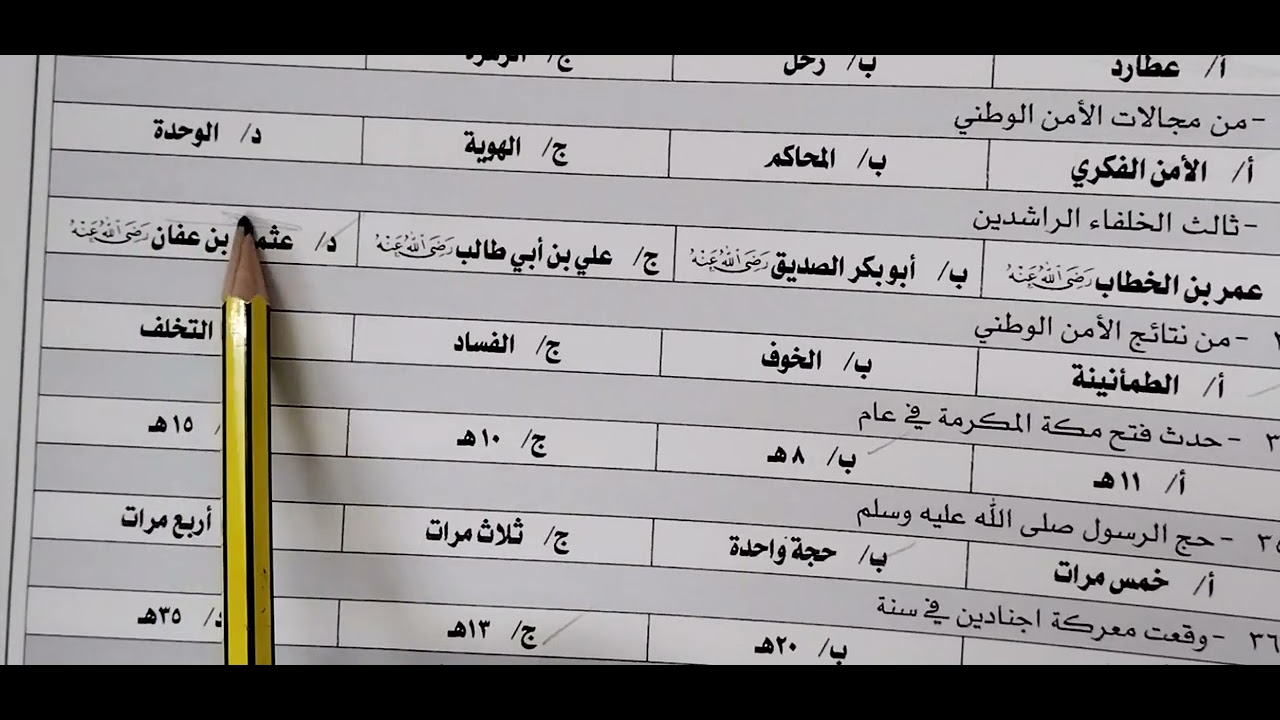 أ/ عطارد ب/ زحل ج/ الزهرة
- من مجالات الأمن الوطني
أ/ الأمن الفكري ب/ المحاكم ج/ الهوية د/ الوحدة
- ثالث الخلفاء الراشدين
عمر بن الخطاب رَضِيَ اللَّهُ عَنْهُ ب/ أبو بكر الصديق رَضِيَ اللَّهُ عَنْهُ ج/ علي بن أبي طالب رَضِيَ اللَّهُ عَنْهُ د/ عثمان بن عفان رَضِيَ اللَّهُ عَنْهُ
- من نتائج الأمن الوطني
أ/ الطمأنينة ب/ الخوف ج/ الفساد التخلف
- حدث فتح مكة المكرمة في عام
أ/ ١١هـ ب/ ٨هـ ج/ ١٠هـ / ١٥هـ
- حج الرسول صلى الله عليه وسلم
أ/ خمس مرات ب/ حجة واحدة ج/ ثلاث مرات أربع مرات
٣٦ - وقعت معركة اجنادين في سنة
ب/ ٢٠هـ ج/ ١٣هـ د/ ٣٥هـ